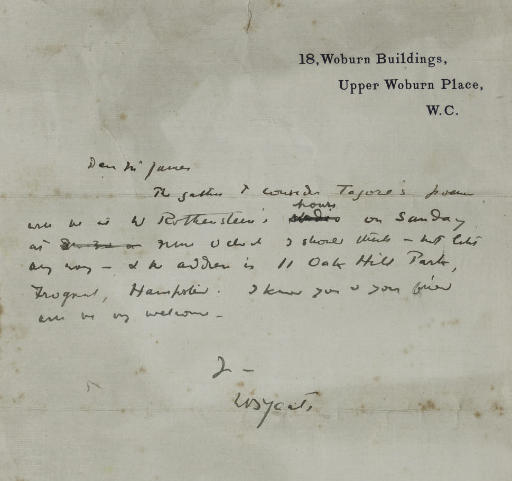 18, Woburn Buildings,
Upper Woburn Place,
W.C.
Dear Mr James
The gather to consider Tagore's poems
will be at W Rothenstein's house on Sunday
at o clock I should think — not late
any way — the address is 11 Oak Hill Park,
Frognal, Hampstead. I know you & your friend
will be very welcome —
Yr —
WB Yeats